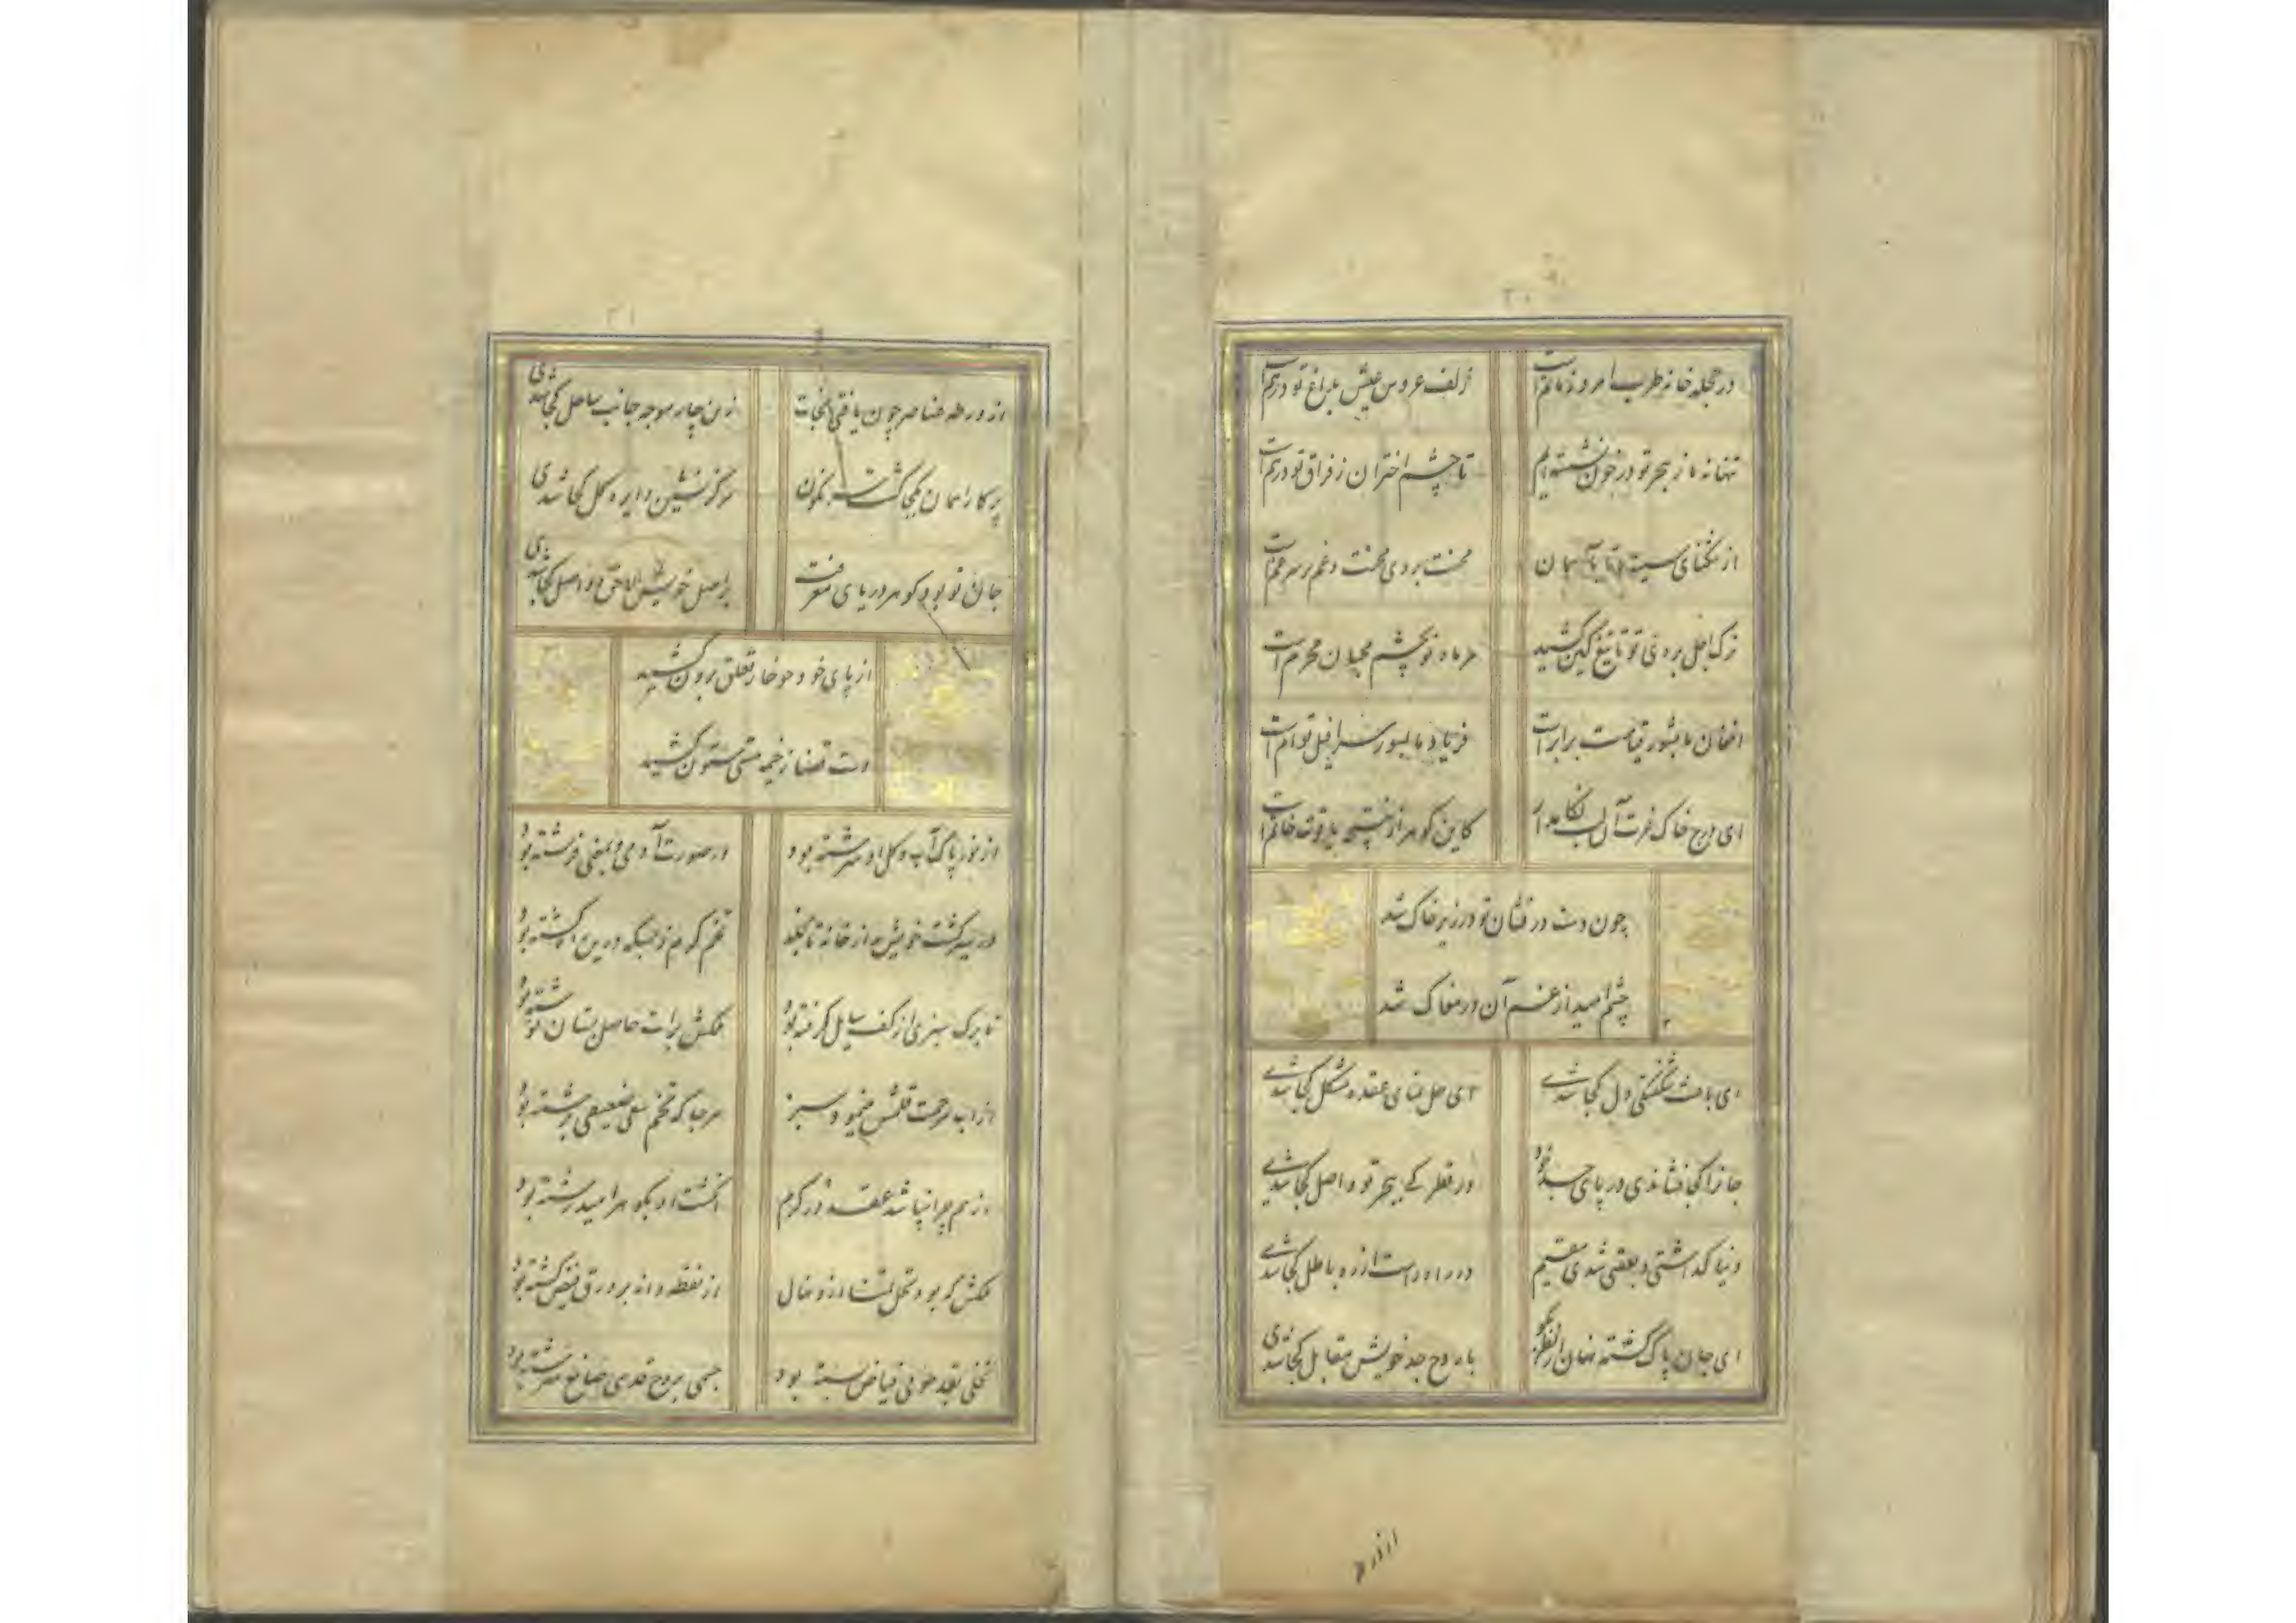 ۳۰
در حجله خانه طرب امروز ماتم است
زلف عروس عیش بداغ تو درهم است
تنها نه ما ز هجر تو در خون نشسته ایم
تا چشم اختران ز فراق تو درنم است
از تنگنای سینه ما تا بآسمان
محنت بروی محنت و غم بر سر غم است
ترک اجل بروی تو تا تیغ کین کشید
هر ماه نو بچشم محبان محرم است
افغان ما بشور قیامت برابر است
فریاد ما بصور سرافیل توام است
ای درج خاک عزت آن لب نگاهدار
کاین گوهر از نتیجه یاقوت خاتم است
چون دست در فشان تو در زیر خاک شد
چشم امید از غم آن در مغاک شد
ای باعث شکفتگی دل کجا شدی
ای حل نمای عقده مشکل کجا شدی
جانرا کجا فشاندی و در پای جد خود
در قطرگی ببحر تو واصل کجا شدی
دنیا گذاشتی و بعقبی شدی مقیم
در راه راست از ره باطل کجا شدی
ای جان پاک گشته نهان از نظر بگو
با روح جد خویش مقابل کجا شدی
از ورطه
۳۱
از ورطه عناصر چون یافتی نجات
زین چار موجه جانب ساحل کجا شدی
پرکار آسمان بکجا گشت نگون
مرکز نشین دایره گل کجا شدی
جان تو بود گوهر دریای معرفت
بر اصل خویش لاحق و واصل کجا شدی
از پای خود چو خار تعلق برون کشید
دست قضا ز خیمه هستی ستون کشید
از نور پاک آب و گل او سرشته بود
در صورت آدمی و بمعنی فرشته بود
در سیر گشت خویش از خانه تا بخلد
تخم کرم ز بسکه درین راه کشته بود
تا برگ سبزی از کف سایل گرفته بود
کلکش برات حاصل بستان نوشته بود
از آب مرحمت قلمش خیمو سبز
هر جا که تخم سعی ضعیفی برشته بود
از هم چرا نپاشد عقد در کرم
انگشت او بگوهر امید رشته بود
کلکش که بود نخل تمنا ز زلف و خال
از نقطه دانه بر ورق فیض کشته بود
نخلی بقد خوبی فیاض بسته بود
جسمی بروح قدسی صانع سرشته بود